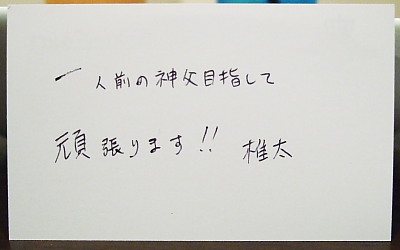 一人前の神父目指して
頑張ります!! 椎太